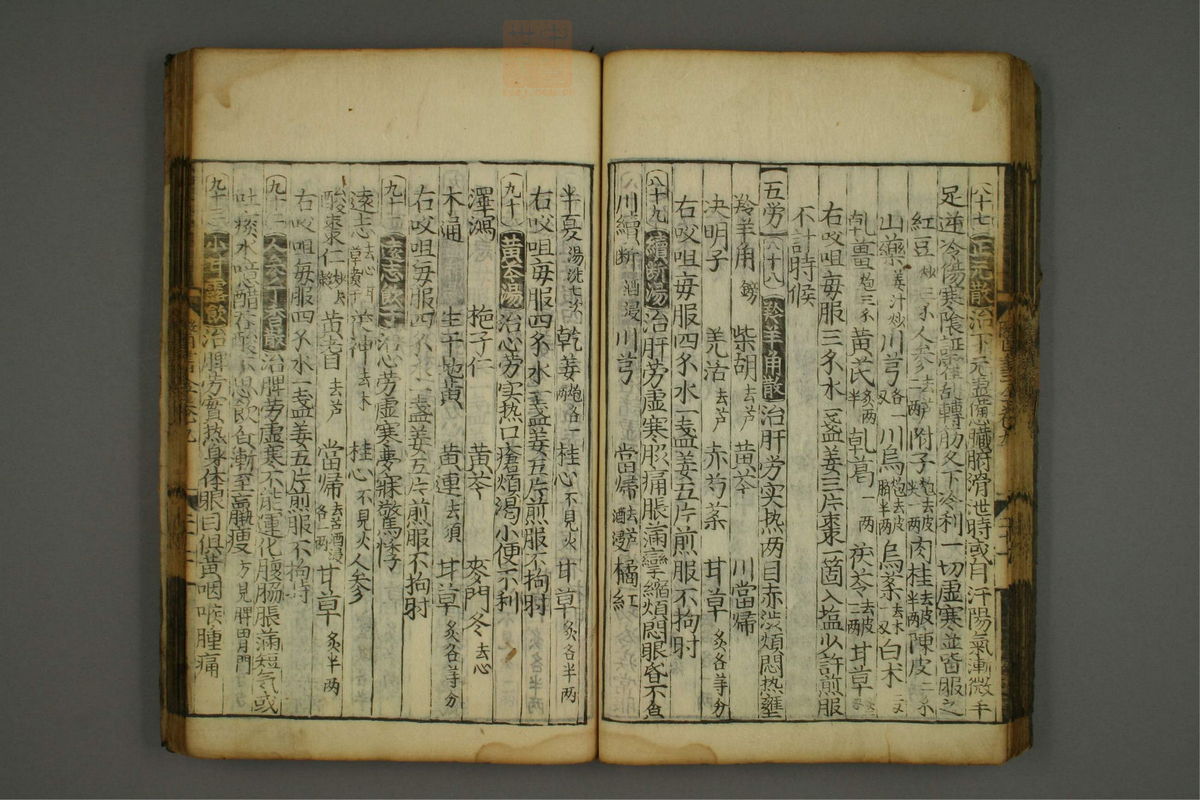 八十七 正元散 治下元虛備臟腑滑泄時或自汗陽氣漸微手
足逆冷傷寒陰証霍乱轉筋久下冷利一切虛寒並皆服之
紅豆炒三分 人参去芦一兩 附子炮去皮尖一兩 肉桂去皮 陳皮二分
山藥姜汁炒 川芎各一又 川烏炮去皮臍半兩 烏藥去木一又 白术二又
乾薑炮三分 黄芪炙两半 乾葛一两 茯苓去皮一两 甘草
右㕮咀每服三分水一盞姜三片棗一箇入塩少許煎服
不計時候
五劳 八十八 羚羊角散 治肝劳实热两目赤渋煩悶热壅
羚羊角鎊 柴胡去芦 黄芩 川當帰
决明子 羌活去芦 赤芍薬 甘草炙各等分
右㕮咀每服四分水一盞姜五片煎服不拘时
八十九 續断湯 治肝劳虚寒形痛脹滿攣縮煩悶眼昏不食
川續断酒浸 川芎 當帰去芦酒浸 橘紅
半夏湯洗七次 乾姜炮各一两 桂心不見火 甘草炙各半两
右㕮咀每服四分水一盞姜五片煎服不拘时
九十 黄芩湯 治心劳实热口瘡煩渴小便不利
澤瀉 梔子仁 黄芩 麥門冬去心
木通 生干地黄 黄連去須 甘草炙各等分
右㕮咀每服四分水一盞姜五片煎服不拘时
九十一 遠志飲子 治心劳虚寒夢寐驚悸
遠志去心 茯神去木 桂心不見火 人参
酸棗仁炒 黄芪去芦 當帰去芦酒浸各一两 甘草炙半两
右㕮咀每服四分水一盞姜五片煎服不拘时
九十二 人参丁香散 治脾劳虚寒不能運化腹脇脹滿短气或
吐痰水噫醋吞酸不思飲食漸至羸瘦方見脾胃門
九十三 小甘露飲 治脾劳實热身体眼目俱黄咽喉腫痛